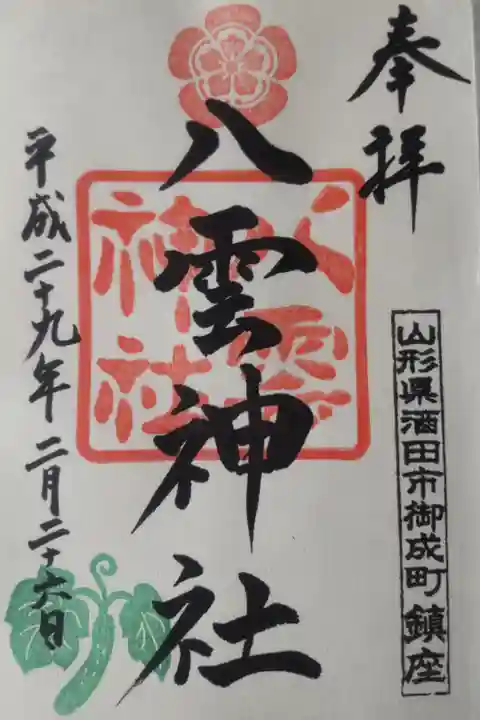 奉拝
山形県酒田市御成町鎮座
八雲神社
八雲神社
平成二十九年二月二十六日